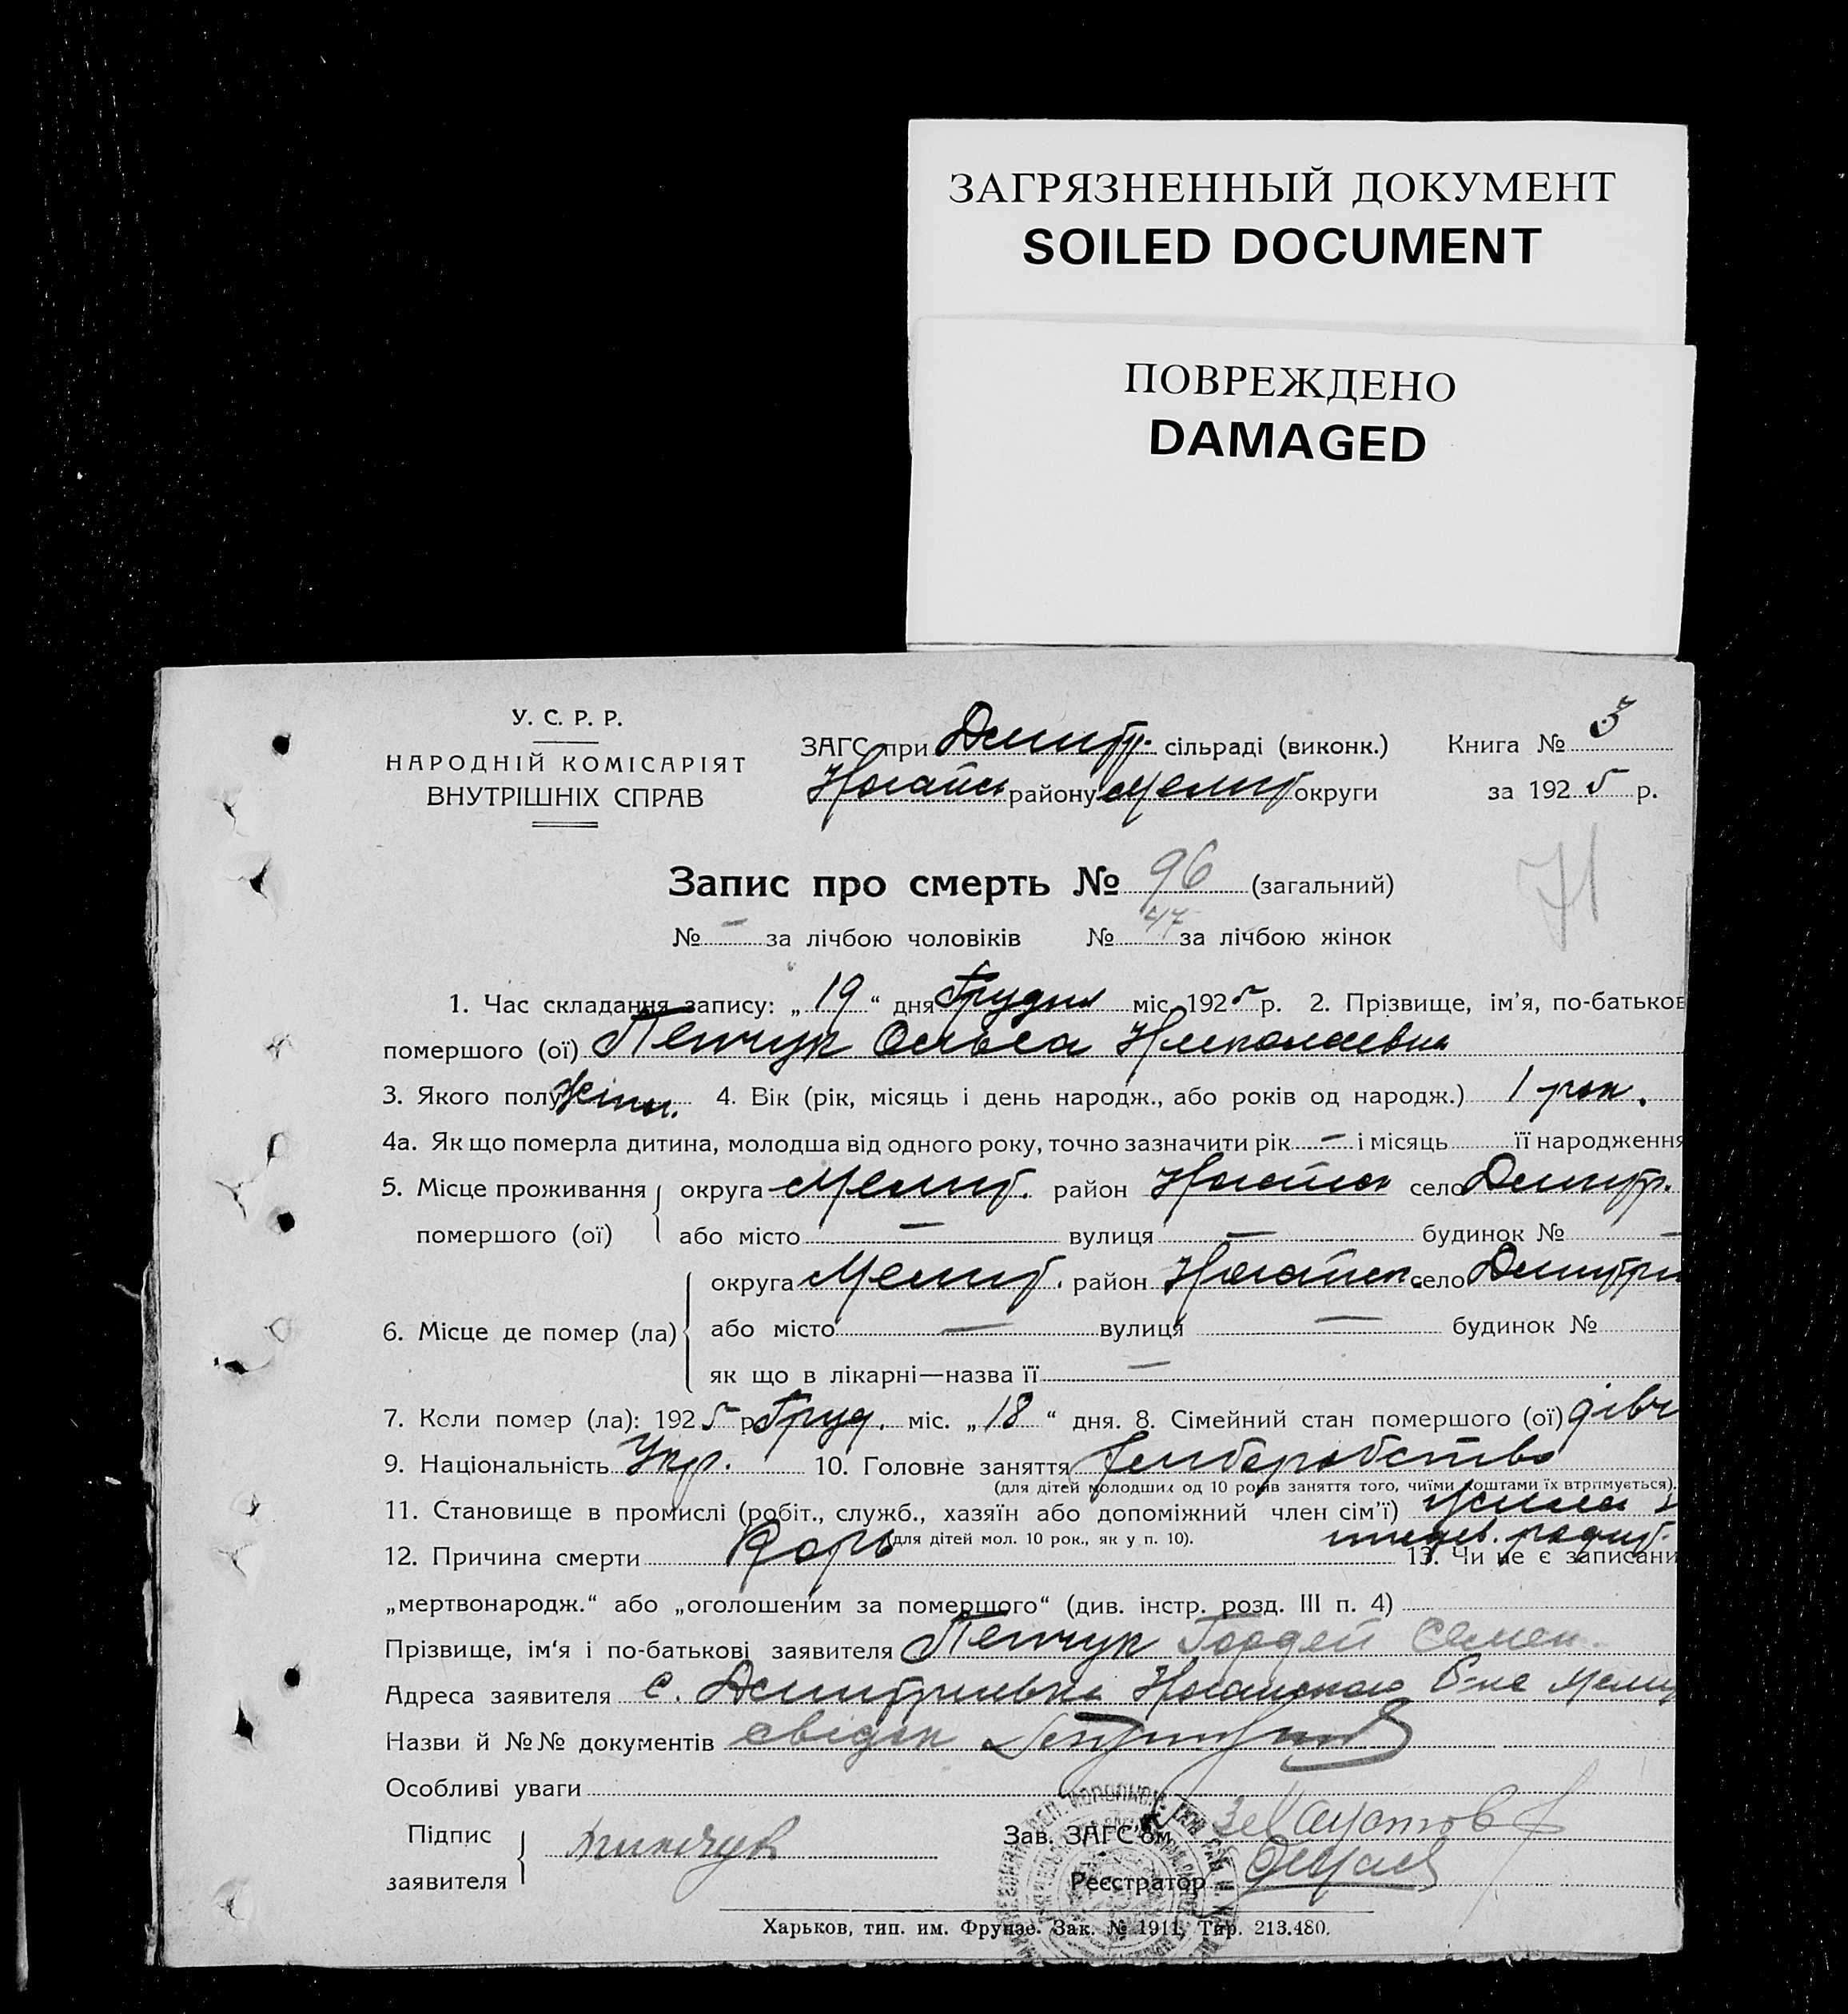 ЗАГРЯЗНЕННЫЙ ДОКУМЕНТ
SOILED DOCUMENT
ПОВРЕЖДЕНО
DAMAGED
У. С. Р. Р.
НАРОДНІЙ КОМІСАРІЯТ
ВНУТРІШНІХ СПРАВ
ЗАГС при Дмитр. сільраді (виконк.)
Ногайск району Мелит округи
Книга № 3
за 1925 р.
Запис про смерть № 96 (загальний)
71
№ – за лічбою чоловіків № 47 за лічбою жінок
1. Час складання запису: „19“ дня Грудня міс. 1925 р. 2. Прізвище, ім’я, по-батьков
помершого (ої) Пепчук Ольга Николаевна
3. Якого полу жіноч. 4. Вік (рік, місяць і день народж., або років од народж.) 1 рок.
4а. Як що померла дитина, молодша від одного року, точно зазначити рік – і місяць її народження
5. Місце проживання округа Мелит. район Ногайск село Дмитр.
помершого (ої) або місто – вулиця – будинок № –
округа Мелит. район Ногайск. село Дмитри
6. Місце де помер (ла) або місто – вулиця – будинок №
як що в лікарні—назва її –
7. Коли помер (ла): 1925 р. Груд. міс. „18“ дня. 8. Сімейний стан помершого (ої) дівч
9. Національність Укр. 10. Головне заняття хліборобство
(для дітей молодших од 10 років заняття того, чиїми коштами їх втримується).
11. Становище в промислі (робіт., служб., хазяїн або допоміжний член сім’ї)
(для дітей мол. 10 рок., як у п. 10).
12. Причина смерти Корь 13. Чи не є записани
„мертвонародж.“ або „оголошеним за помершого“ (див. інстр. розд. III п. 4)
Прізвище, ім‘я і по-батькові заявителя Пепчук Гордей Семен.
Адреса заявителя с. Дмитриевка Ногайского Р-на Мели
Назви й №№ документів свідок
Особливі уваги
Підпис
заявителя
Зав. ЗАГС’ом
Реєстратор
Харьков, тип. им. Фрунзе. Зак. № 1911, Тир. 213.480.